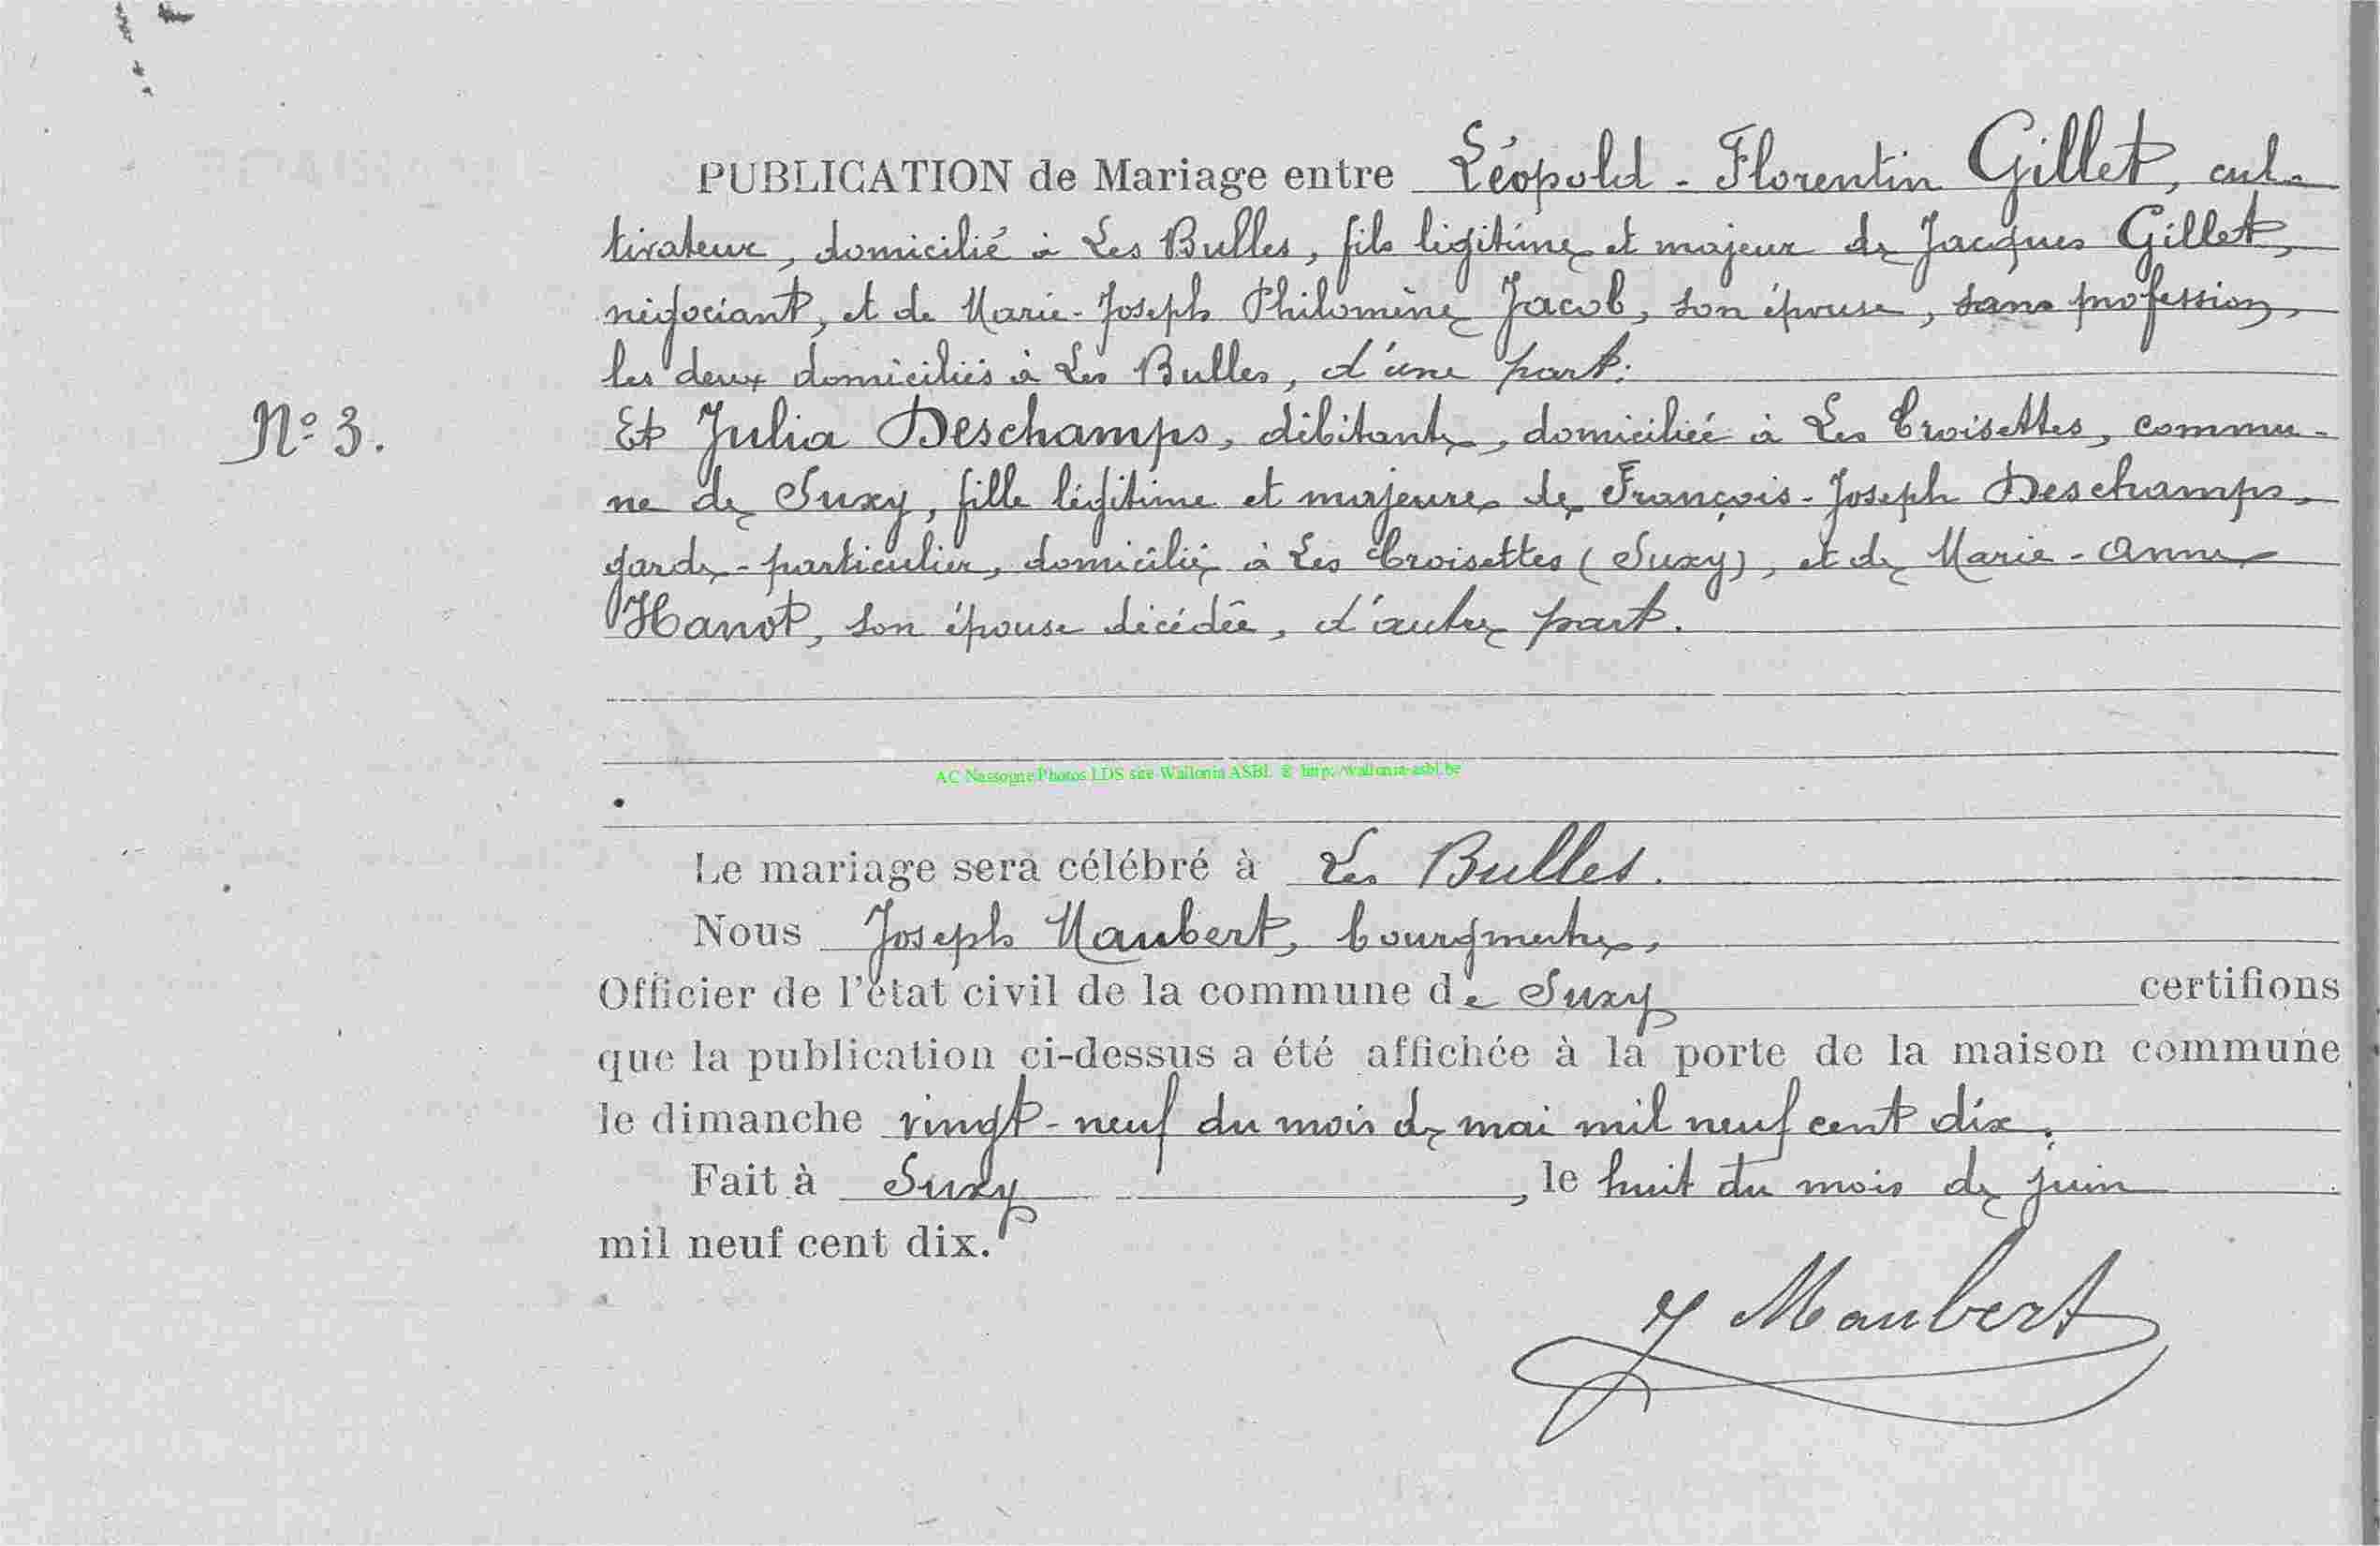 PUBLICATION de Mariage entre Léopold - Florentin Gillet, cul-
tivateur, domicilié à Les Bulles, fils légitime et majeur de Jacques Gillet,
négociant, et de Marie-Joseph Philomène Jacob, son épouse, sans profession,
les deux domiciliés à Les Bulles, d'une part:
N° 3.
Et Julia Deschamps, débitante, domiciliée à Les Croisettes, commu-
ne de Suxy, fille légitime et majeure de François-Joseph Deschamps,
garde-particulier, domicilié à Les Croisettes (Suxy), et de Marie-Anne
Hanot, son épouse décédée, d'autre part.
AC Nassogne Photos LDS site Wallonia ASBL © http://wallonia-asbl.be
Le mariage sera célébré à Les Bulles.
Nous Joseph Maubert, bourgmestre,
Officier de l'état civil de la commune de Suxy certifions
que la publication ci-dessus a été affichée à la porte de la maison commune
le dimanche vingt-neuf du mois de mai mil neuf cent dix.
Fait à Suxy, le huit du mois de juin
mil neuf cent dix.
J Maubert